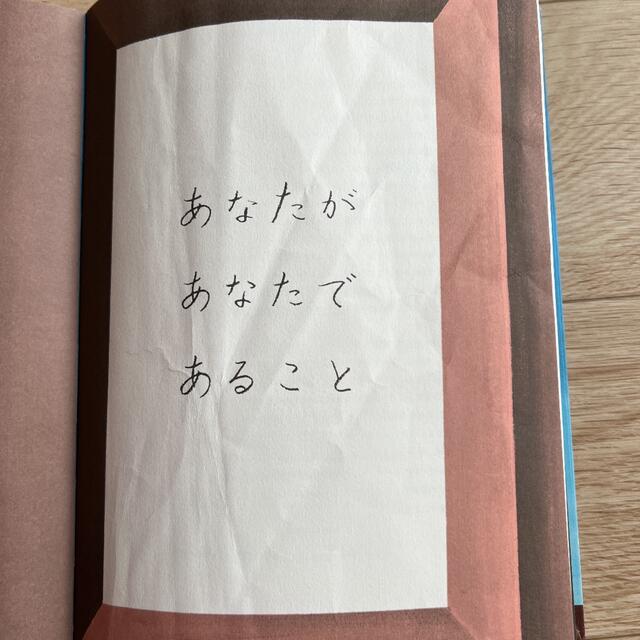 あなたが
あなたで
あること